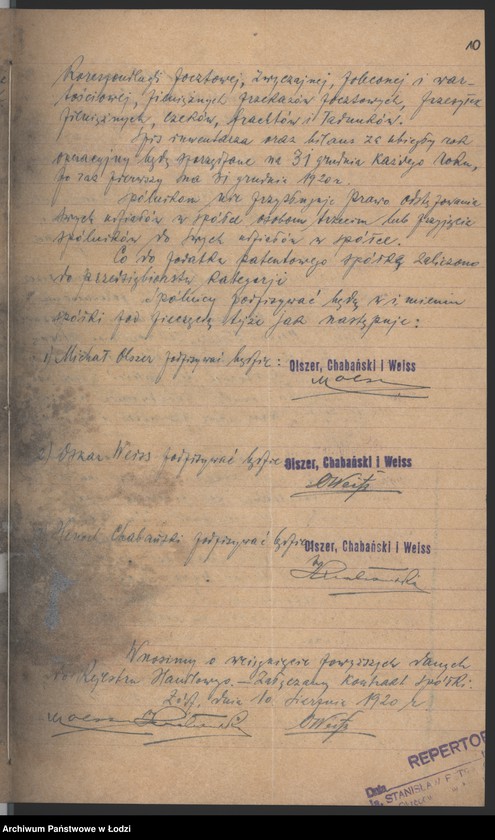 10
Korespondencji pocztowej, zwyczajnej, poleconej i war-
tościowej, pieniężnych przekazów pocztowych, przesyłek
pieniężnych, czeków, frachtów i ładunków.
Spis inwentarza oraz bilans za ubiegły rok
operacyjny będą sporządzane na 31 grudnia każdego roku,
po raz pierwszy dnia 31 grudnia 1920 r.
Spólnikom nie przysługuje prawo odstępowania
swych udziałów w spółce osobom trzecim lub przyjęcie
spólników do swych udziałów w spółce.
Co do podatku patentowego spółkę zaliczono
do przedsiębiorstw kategorji
Spólnicy podpisywać będą w imieniu
spółki pod pieczęcią tejże jak następuje:
1) Michał Olszer podpisywać będzie:
Olszer, Chabański i Weiss
2) Oskar Weiss podpisywać będzie
Olszer, Chabański i Weiss
OWeiss
Chabański podpisywać będzie
Olszer, Chabański i Weiss
Wnosimy o wciągnięcie powyższych danych
do Rejestru Handlowego. — Załączamy kontrakt spółki.
Łódź, dnia 10 sierpnia 1920 r
OWeiss
REPERTOR
Dnia
STANISŁAW
Archiwum Państwowe w Łodzi